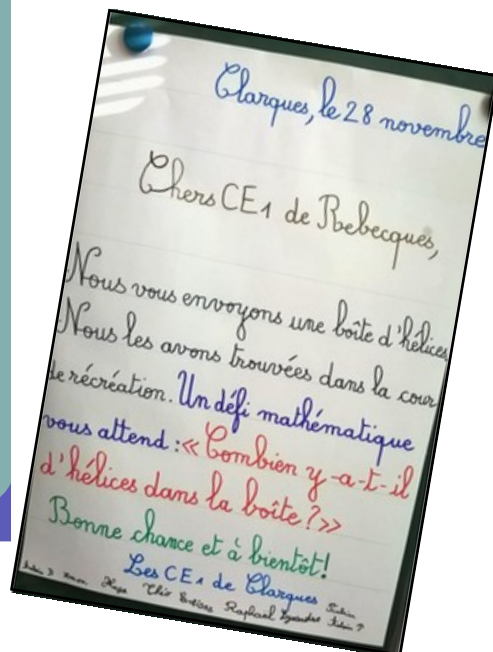 Clarques, le 28 novembre
Chers CE1 de Rebecques,
Nous vous envoyons une boîte d'hélices
Nous les avons trouvées dans la cour
de récréation. Un défi mathématique
vous attend : « Combien y-a-t-il
d'hélices dans la boîte ? »
Bonne chance et à bientôt!
Les CE1 de Clarques
Hugo Théo Raphaël